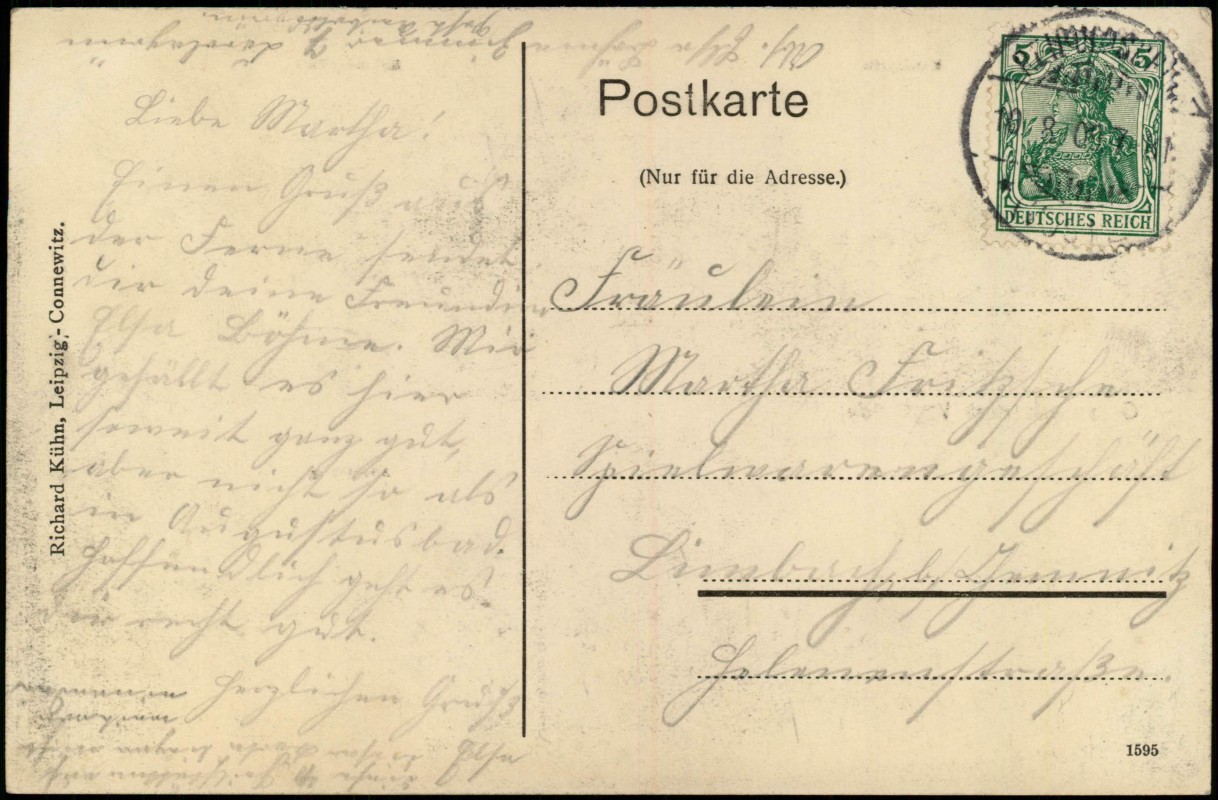 Postkarte
(Nur für die Adresse.)
5 5
DEUTSCHES REICH
Liebe Martha!
Einen Gruß aus
der Ferne sendet
dir deine Freundin
Elsa Böhme. Mir
gefällt es hier
soweit ganz gut,
aber nicht so als
in Augustusbad.
Hoffendlich geht es
dir recht gut.
Herzlichen Gruß
Elsa
Fräulein
Martha Fritzsche
Spielwarengeschäft
Limbach, b/Chemnitz
Helenenstraße.
Richard Kühn, Leipzig-Connewitz.
1595